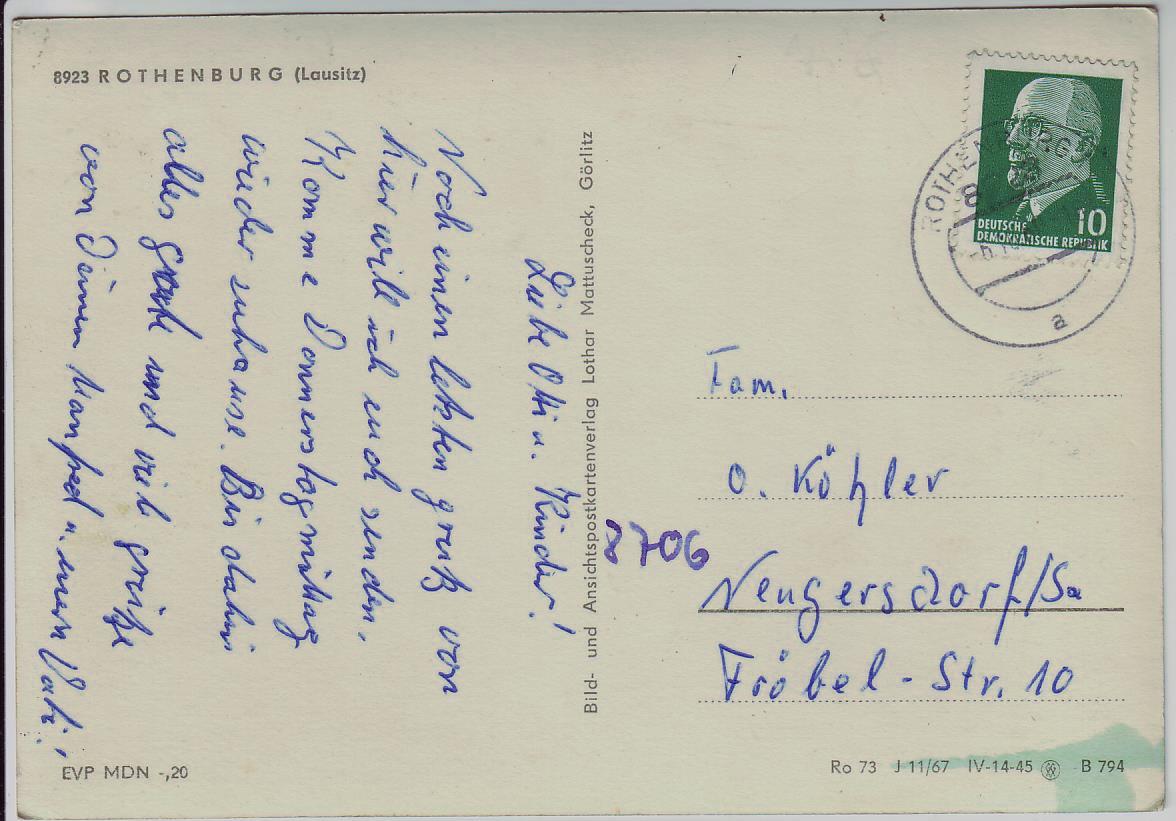 8923 ROTHENBURG (Lausitz)
Liebe Otti u. Kinder!
Noch einen letzten gruß von
hier will ich euch senden.
Komme Donnerstagmittag
wieder zuhause. Bis dahin
alles gute und viele grüße
von Deinen Manfred u. euren Vati!
EVP MDN -,20
Bild- und Ansichtspostkartenverlag Lothar Mattuscheck, Görlitz
DEUTSCHE
DEMOKRATISCHE REPUBLIK
10
ROTHENBURG
a
Fam.
O. Köhler
8706
Neugersdorf/Sa
Fröbel-Str. 10
Ro 73 J 11/67 IV-14-45 B 794